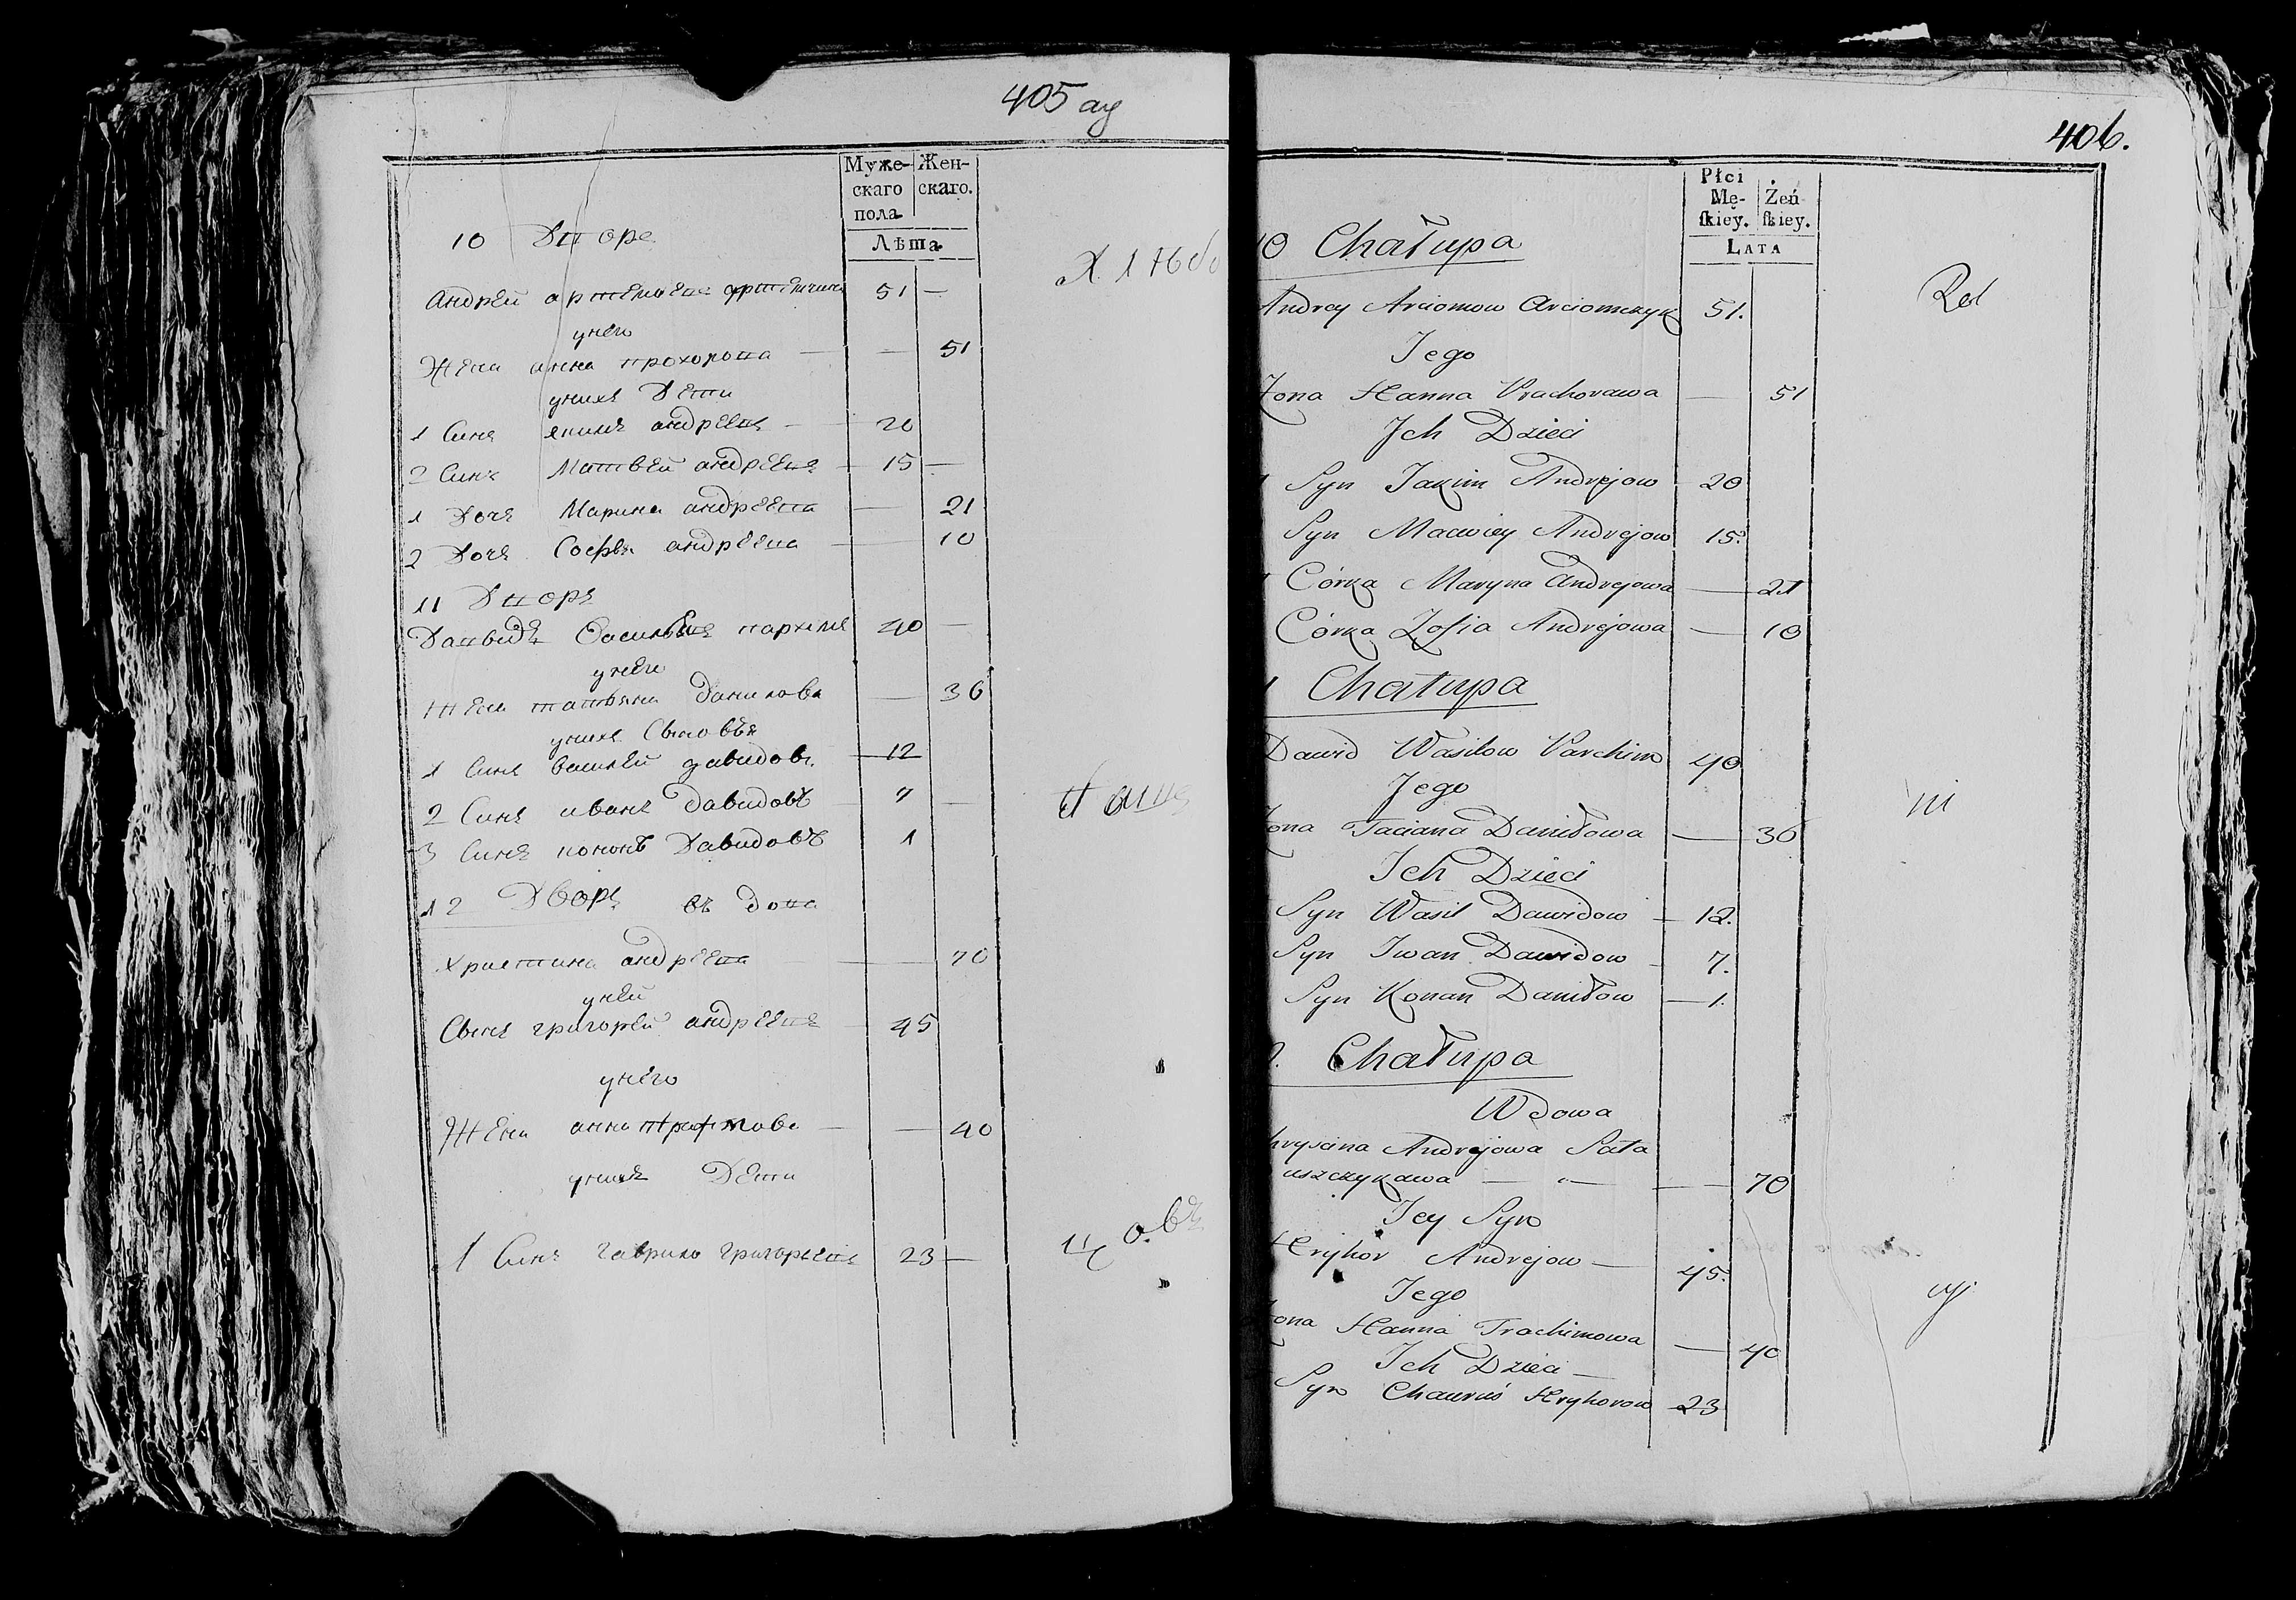 405 ау
Муже- Жен-
скаго скаго.
пола
Лѣта
10 Дворе
Андрей артемьевъ 51 —
унего
Жена анна прохорова — — 51
унихъ Дети
1 Синъ якимъ андреевъ — 20
2 Синъ Матвей андреевъ — 15 —
1 Дочъ Марина андреева — 21
2 Дочъ Софья андреева — 10
11 Дворъ
Давидъ Васильевъ пархимъ 40 —
унего
Жена татьяна Данилова — 36
унихъ Сыновья
1 Синъ василей давидовъ — 12
2 Синъ иванъ Давидовъ — 7 —
3 Синъ кононъ Давидовъ 1
12 Дворъ въ дова
Христина андреева — 70
уней
Сынъ григорей андреевъ — 45
унего
Жена анна трафимова — — 40
унихъ Дети
1 Синъ гаврило григорьевъ 23 —
406.
Płci
Mę- Żeń
ſkiey. ſkiey.
Lata
10 Chałupa
Andrey Arciomow Arciomczyk 51.
Jego
Żona Hanna Prachorawa — 51
Jch Dzieci
Syn Jakim Andrejow 20
Syn Macwiey Andrejow 15.
Córka Maryna Andrejowa — 21
Córka Zofia Andrejowa — 10
Chałupa
Dawid Wasilow Parchim 40
Jego
Żona Taciana Daniłowa — 36
Jch Dzieci
Syn Wasil Dawidow — 12.
Syn Iwan Dawidow — 7.
Syn Konan Daniłow — 1.
Chałupa
Wdowa
hryscina Andrejowa Sała
uszczykawa — " — — 70
Jey Syn
Hryhor Andrejow — 45.
Jego
żona Hanna Trachimowa — 40
Jch Dzieci —
Syn Chauruś Hryhorow 23